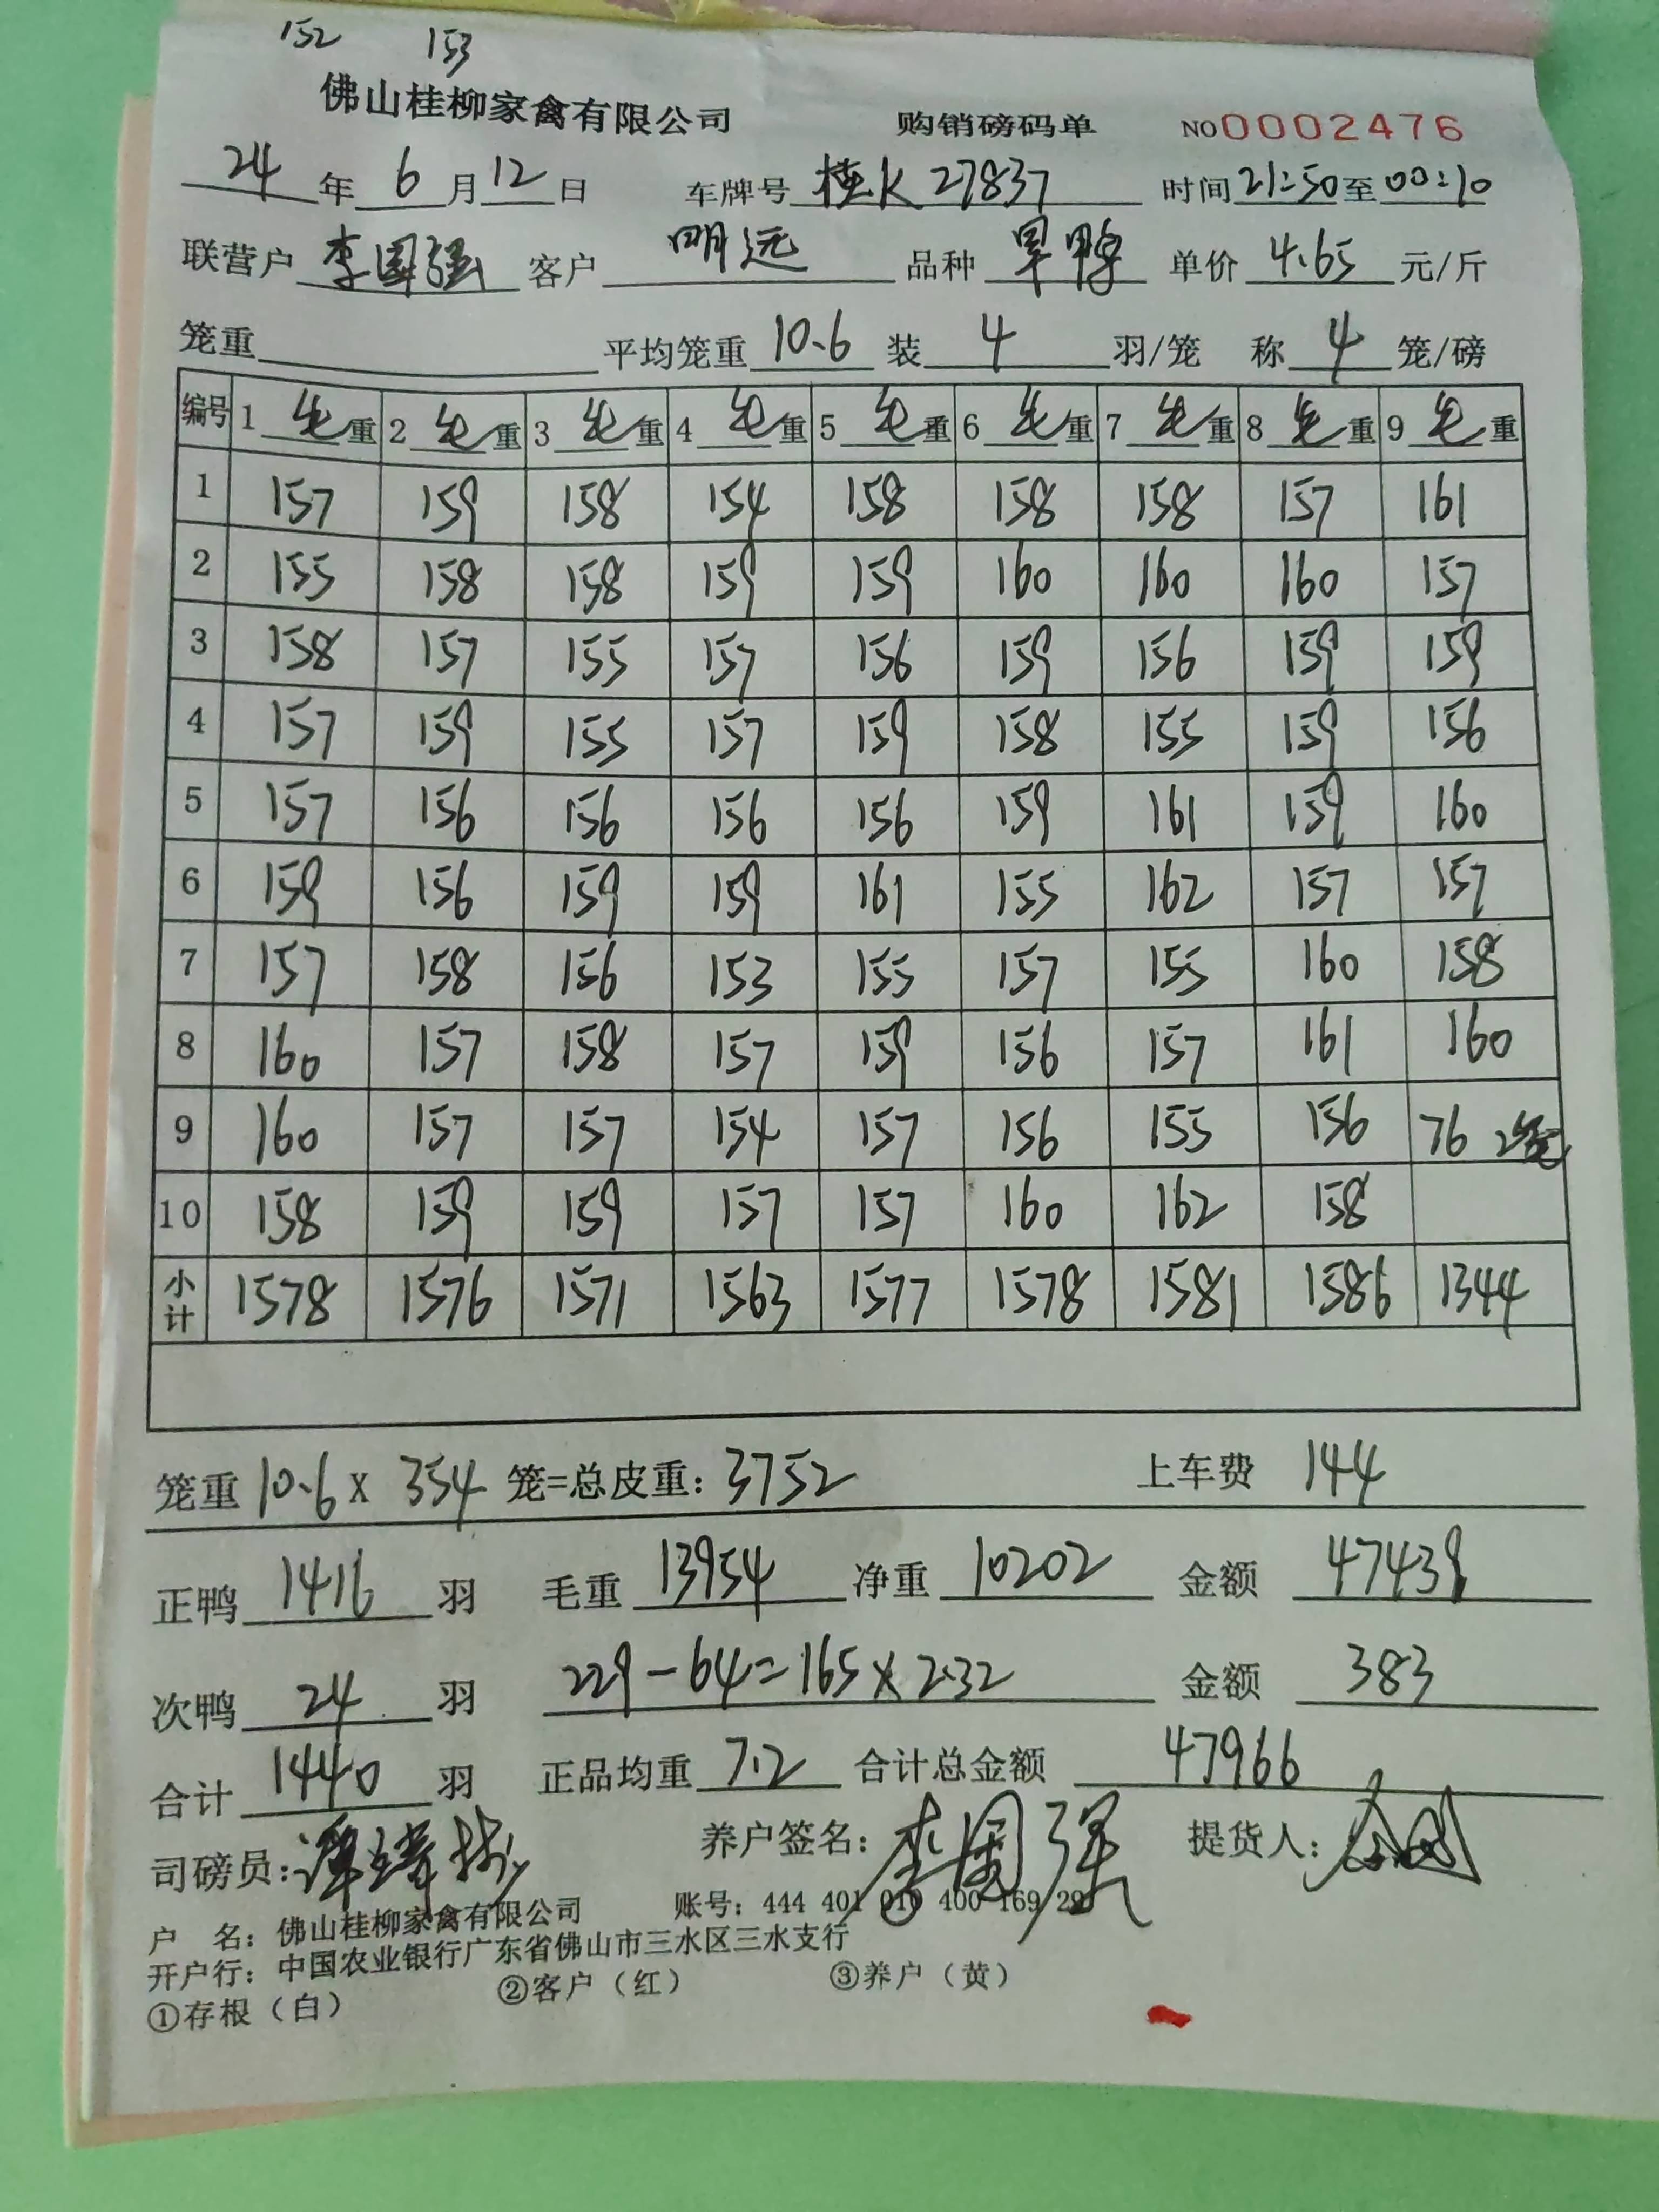 152 153
佛山桂柳家禽有限公司 购销磅码单 NO0002476
24年6月12日 车牌号 桂K27837 时间21:50至00:10
联营户 李国强 客户 明远 品种 旱鸭 单价 4.65 元/斤
笼重 平均笼重 10.6 装 4 羽/笼 称 4 笼/磅
编号 1 毛重 2 毛重 3 毛重 4 毛重 5 毛重 6 毛重 7 毛重 8 毛重 9 毛重
1 157 159 158 154 158 158 158 157 161
2 155 158 158 159 159 160 160 160 157
3 158 157 155 157 156 159 156 159 159
4 157 159 155 157 159 158 155 159 156
5 157 156 156 156 156 159 161 159 160
6 159 156 159 159 161 155 162 157 157
7 157 158 156 153 155 157 155 160 158
8 160 157 158 157 159 156 157 161 160
9 160 157 157 154 157 156 155 156 76 2笼
10 158 159 159 157 157 160 162 158
小计 1578 1576 1571 1563 1577 1578 1581 1586 1344
笼重 10.6 X 354 笼=总皮重: 3752 上车费 144
正鸭 1416 羽 毛重 13954 净重 10202 金额 47439
次鸭 24 羽 229-64=165×2.32 金额 383
合计 1440 羽 正品均重 7.2 合计总金额 47966
司磅员: 养户签名: 李国强 提货人:
户 名: 佛山桂柳家禽有限公司 账号: 444 401 010 400 169 29
开户行: 中国农业银行广东省佛山市三水区三水支行
①存根(白) ②客户(红) ③养户(黄)